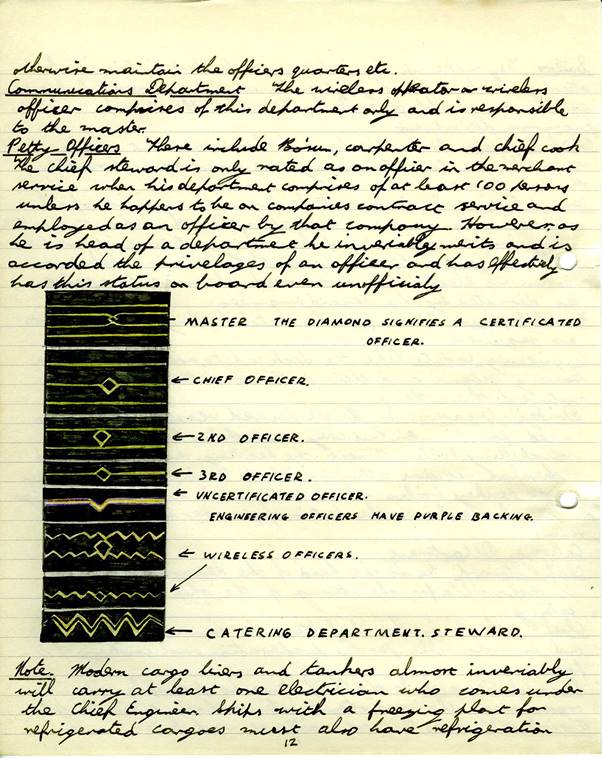 otherwise maintain the officers quarters etc.
Communications Department The wireless operator or wireless
officer comprises of this department only and is responsible
to the master.
Petty-Officers These include Bosun, carpenter and chief cook
The chief steward is only rated as an officer in the merchant
service when his department comprises of at least 100 persons
unless he happens to be on companies contract service and
employed as an officer by that company. However, as
he is head of a department he inveriably merits and is
accorded the privelages of an officer and has effectively
has this status on board even unofficialy
MASTER THE DIAMOND SIGNIFIES A CERTIFICATED
OFFICER.
CHIEF OFFICER.
2ND OFFICER.
3RD OFFICER.
UNCERTIFICATED OFFICER.
ENGINEERING OFFICERS HAVE PURPLE BACKING.
WIRELESS OFFICERS.
CATERING DEPARTMENT. STEWARD.
Note. Modern cargo liners and tankers almost inveriably
will carry at least one electrician who comes under
the Chief Engineer. Ships with a freezing plant for
refrigerated cargoes must also have refrigeration
12